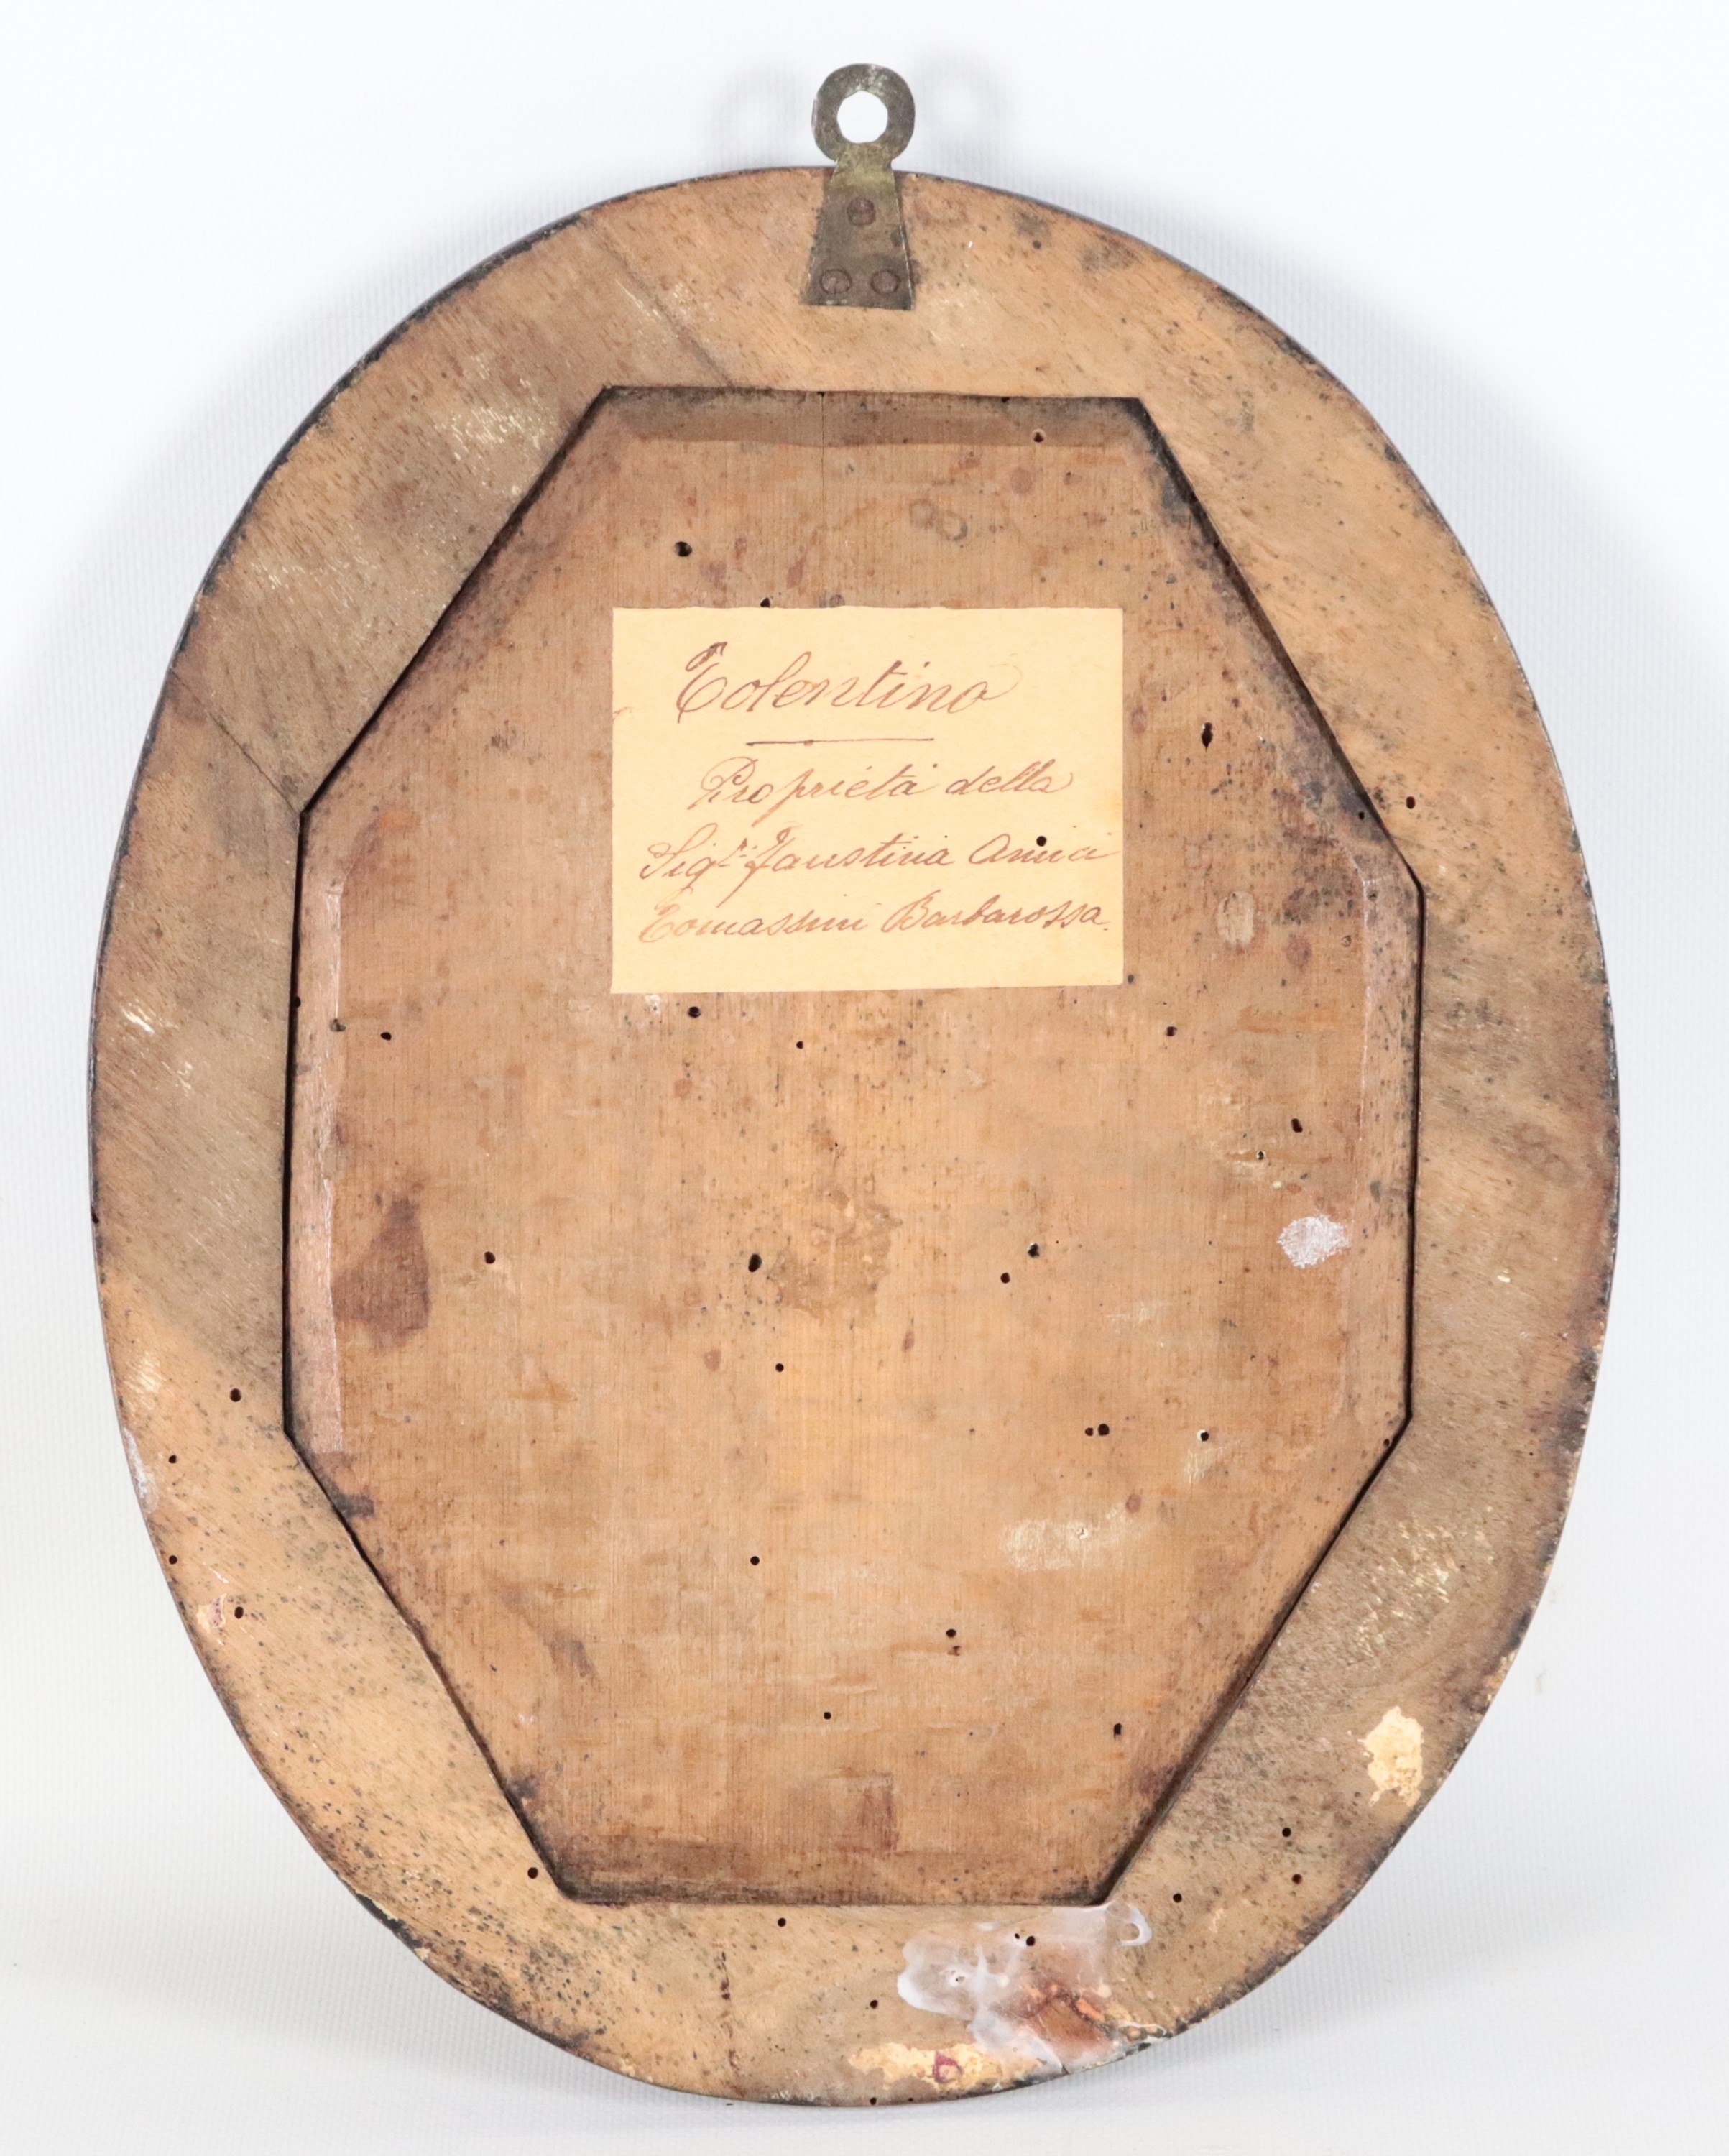 Tolentino
Proprietà della
Sigra: Faustina Amici
Tomassini Barbarossa.